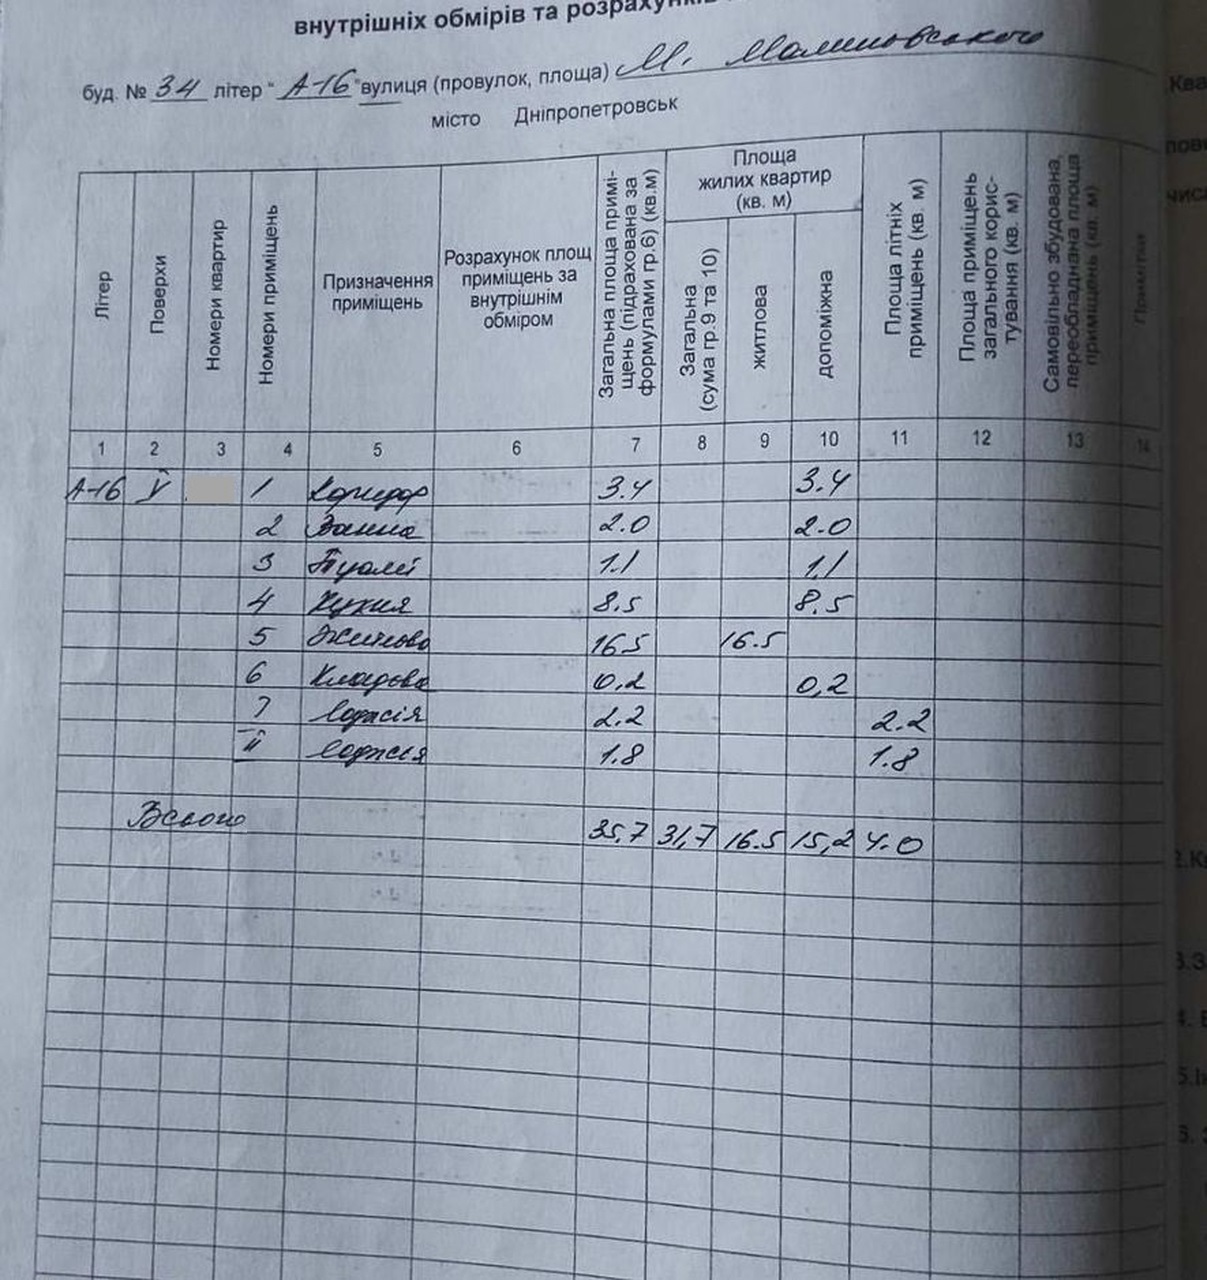 внутрішніх обмірів та розрахунків
буд. № 34 літер " А-16 " вулиця (провулок, площа) М. Малиновського
місто Дніпропетровськ
Літер
Поверхи
Номери квартир
Номери приміщень
Призначення приміщень
Розрахунок площ приміщень за внутрішнім обміром
Загальна площа приміщень (підрахована за формулами гр.6) (кв.м)
Площа жилих квартир (кв. м)
Загальна (сума гр.9 та 10)
житлова
допоміжна
Площа літніх приміщень (кв. м)
Площа приміщень загального користування (кв. м)
Самовільно збудована, переобладнана площа приміщень (кв. м)
Примітки
1 2 3 4 5 6 7 8 9 10 11 12 13 14
А-16 V 1 Коридор 3.4 3.4
2 Ванна 2.0 2.0
3 Туалет 1.1 1.1
4 Кухня 8.5 8.5
5 Житлова 16.5 16.5
6 Кладова 0,2 0,2
7 лоджія 2.2 2.2
ІІ лоджія 1.8 1.8
Всього 35,7 31,7 16.5 15,2 4.0